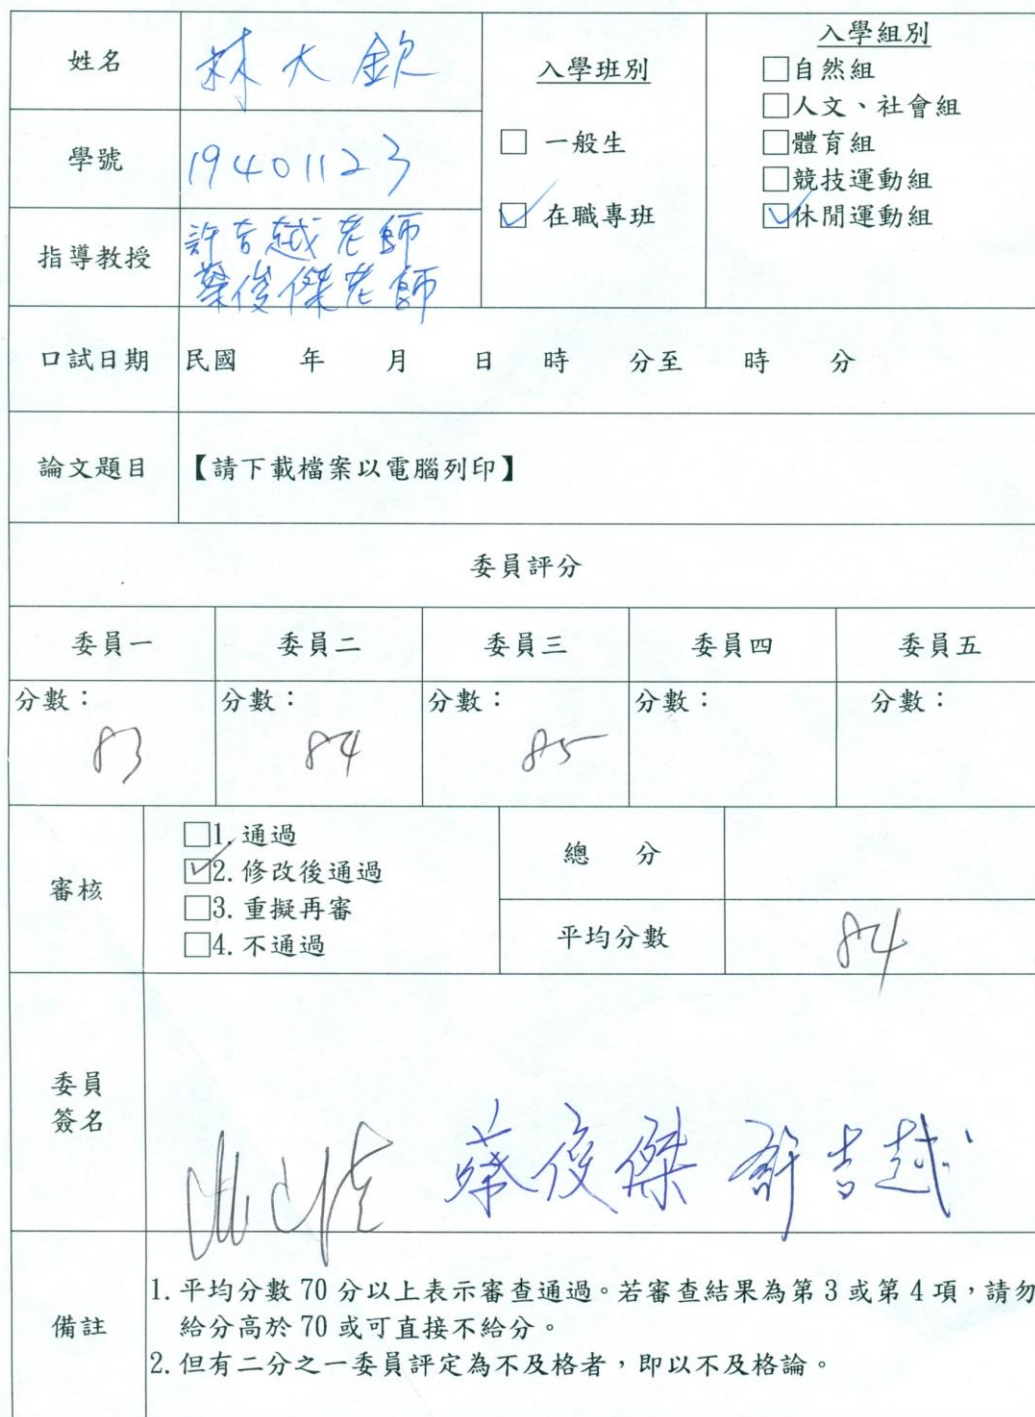 姓名
林大欽
學號
19401123
指導教授
許吉越老師
蔡俊傑老師
入學班別
□ 一般生
☑ 在職專班
入學組別
□自然組
□人文、社會組
□體育組
□競技運動組
☑休閒運動組
口試日期
民國 年 月 日 時 分至 時 分
論文題目
【請下載檔案以電腦列印】
委員評分
委員一 委員二 委員三 委員四 委員五
分數： 分數： 分數： 分數： 分數：
83 84 85
審核
□1.通過
☑2.修改後通過
□3.重擬再審
□4.不通過
總 分
平均分數
84
委員
簽名
蔡俊傑 許吉越
備註
1.平均分數 70 分以上表示審查通過。若審查結果為第 3 或第 4 項，請勿
給分高於 70 或可直接不給分。
2.但有二分之一委員評定為不及格者，即以不及格論。